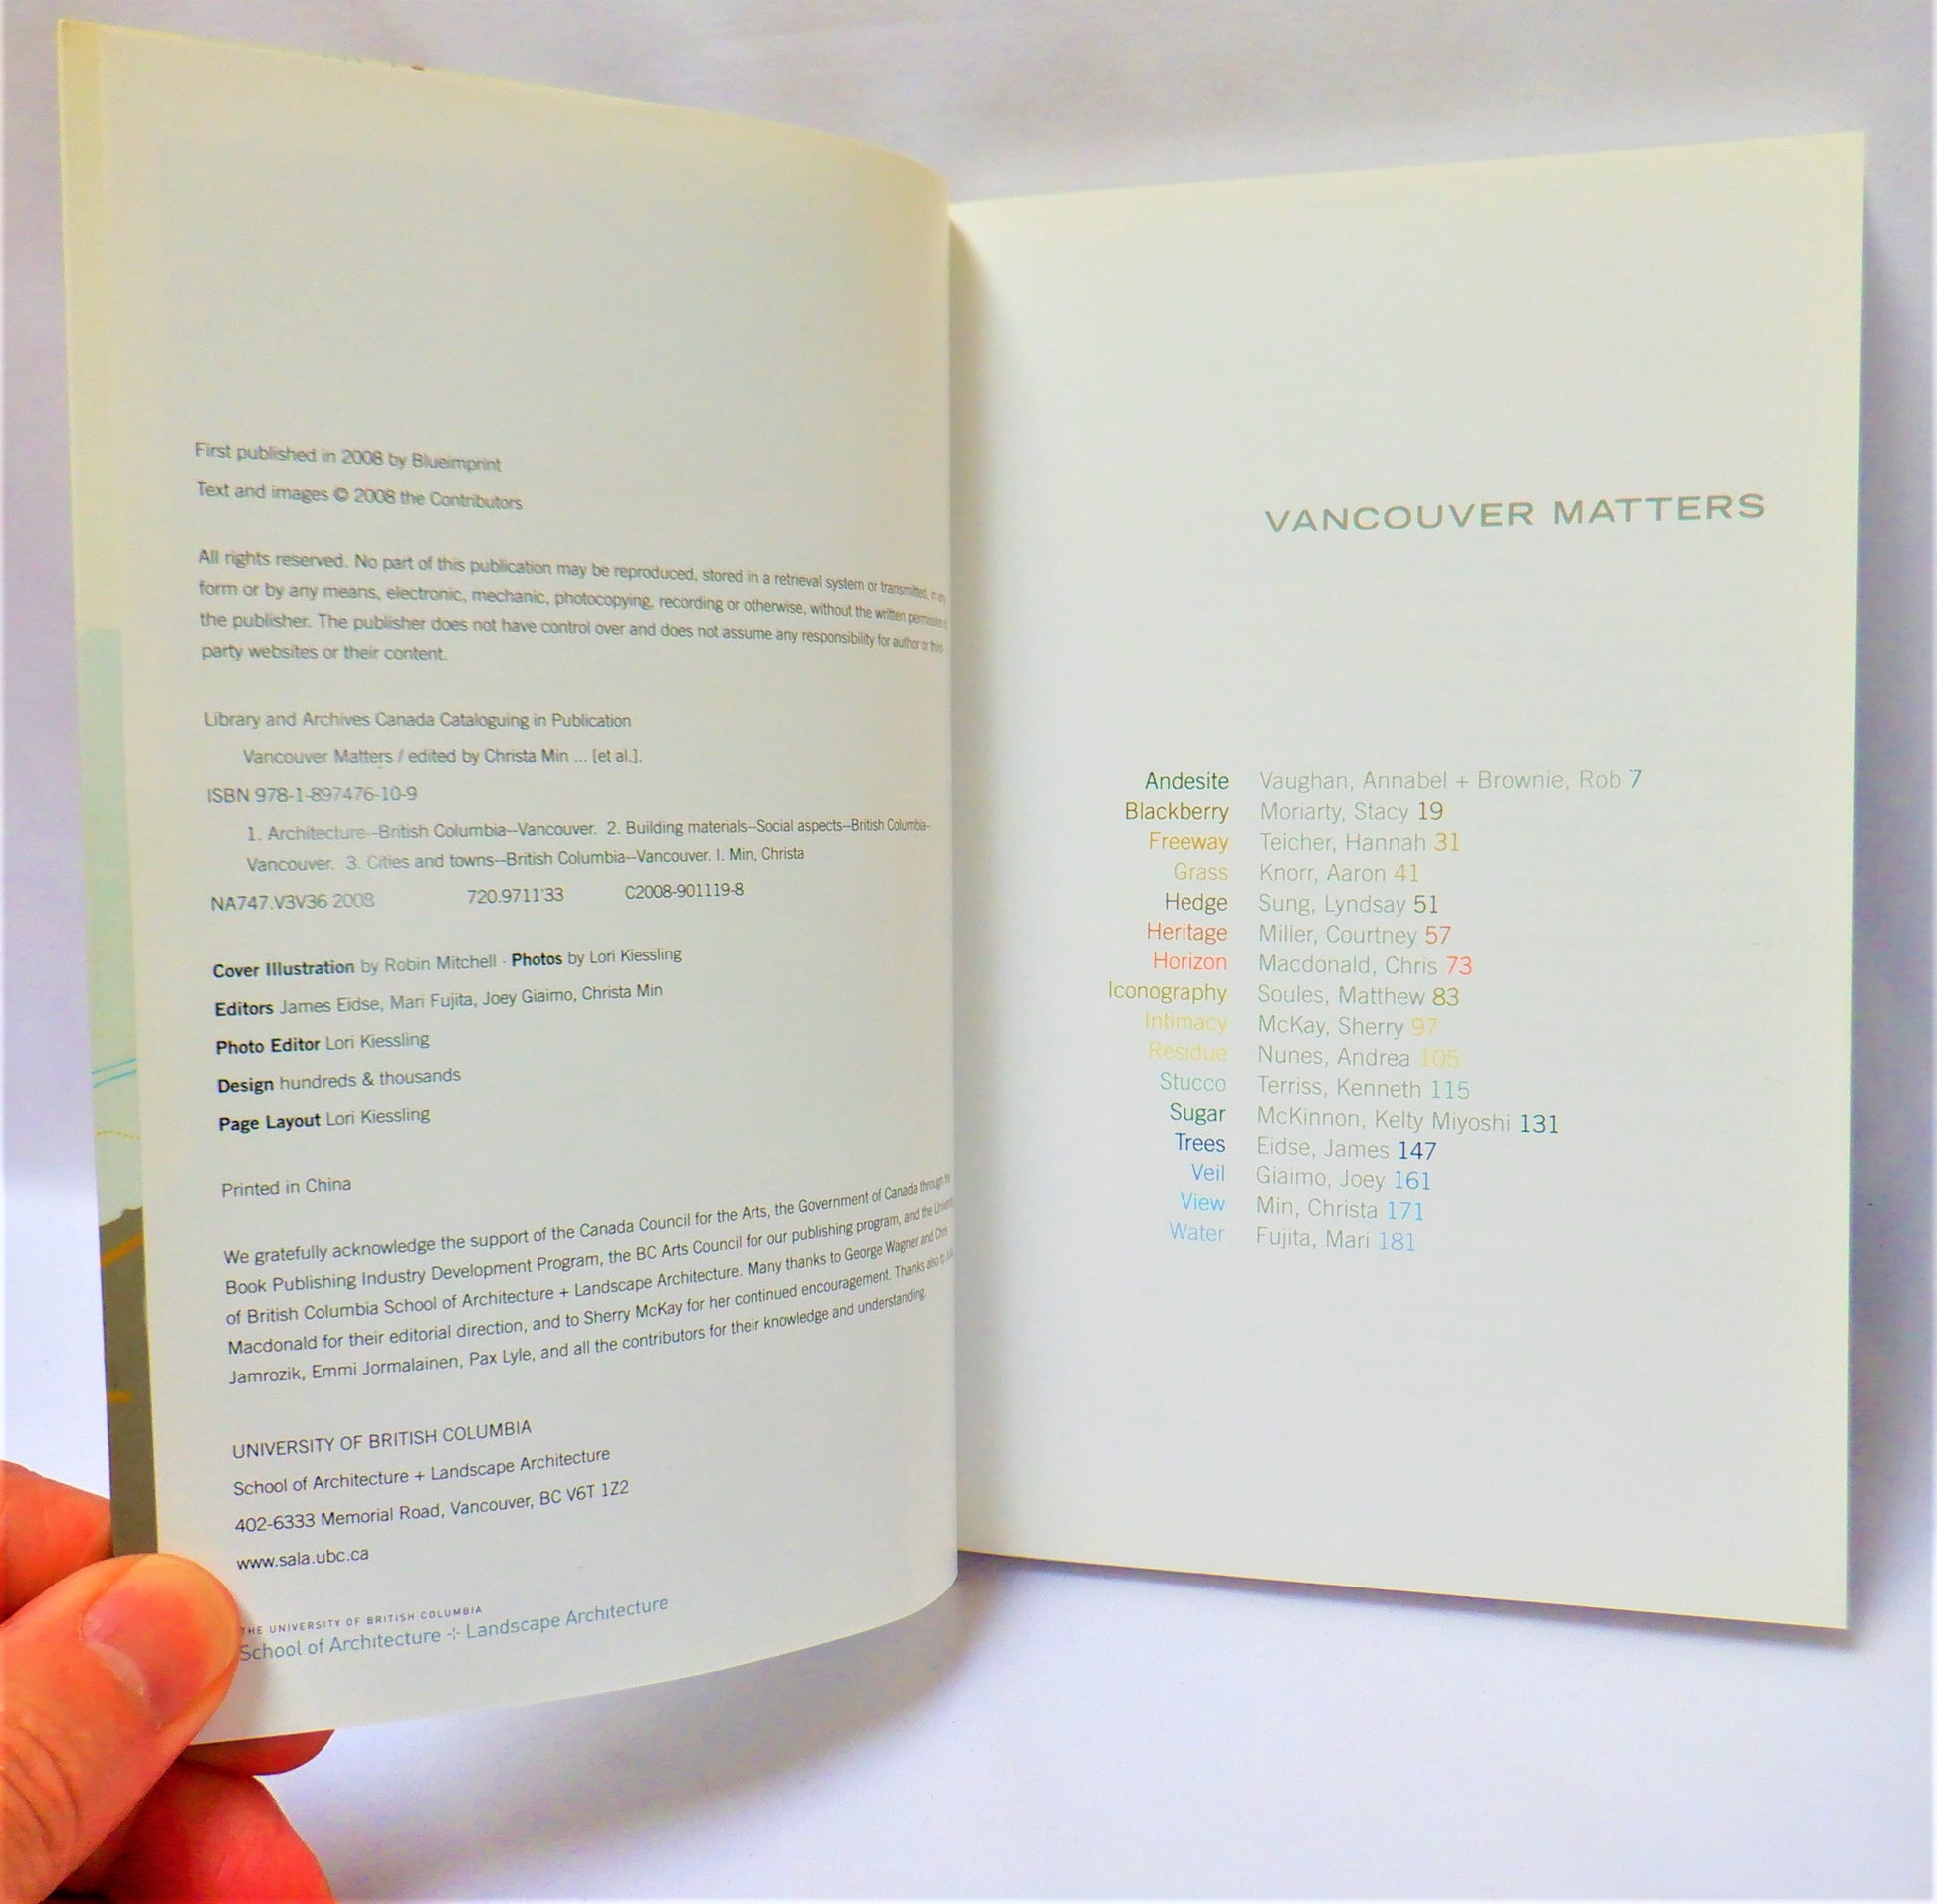 First published in 2008 by Blueimprint
Text and images © 2008 the Contributors
All rights reserved. No part of this publication may be reproduced, stored in a retrieval system or transmitted, in any
form or by any means, electronic, mechanic, photocopying, recording or otherwise, without the written permission of
the publisher. The publisher does not have control over and does not assume any responsibility for author or third-
party websites or their content.
Library and Archives Canada Cataloguing in Publication
Vancouver Matters / edited by Christa Min ... [et al.].
ISBN 978-1-897476-10-9
1. Architecture--British Columbia--Vancouver. 2. Building materials--Social aspects--British Columbia--
Vancouver. 3. Cities and towns--British Columbia--Vancouver. I. Min, Christa
NA747.V3V36 2008 720.9711'33 C2008-901119-8
Cover Illustration by Robin Mitchell · Photos by Lori Kiessling
Editors James Eidse, Mari Fujita, Joey Giaimo, Christa Min
Photo Editor Lori Kiessling
Design hundreds & thousands
Page Layout Lori Kiessling
Printed in China
We gratefully acknowledge the support of the Canada Council for the Arts, the Government of Canada through the
Book Publishing Industry Development Program, the BC Arts Council for our publishing program, and the University
of British Columbia School of Architecture + Landscape Architecture. Many thanks to George Wagner and Chris
Macdonald for their editorial direction, and to Sherry McKay for her continued encouragement. Thanks also to
Jamrozik, Emmi Jormalainen, Pax Lyle, and all the contributors for their knowledge and understanding.
UNIVERSITY OF BRITISH COLUMBIA
School of Architecture + Landscape Architecture
402-6333 Memorial Road, Vancouver, BC V6T 1Z2
www.sala.ubc.ca
THE UNIVERSITY OF BRITISH COLUMBIA
School of Architecture + Landscape Architecture
VANCOUVER MATTERS
Andesite Vaughan, Annabel + Brownie, Rob 7
Blackberry Moriarty, Stacy 19
Freeway Teicher, Hannah 31
Grass Knorr, Aaron 41
Hedge Sung, Lyndsay 51
Heritage Miller, Courtney 57
Horizon Macdonald, Chris 73
Iconography Soules, Matthew 83
Intimacy McKay, Sherry 97
Residue Nunes, Andrea 105
Stucco Terriss, Kenneth 115
Sugar McKinnon, Kelty Miyoshi 131
Trees Eidse, James 147
Veil Giaimo, Joey 161
View Min, Christa 171
Water Fujita, Mari 181